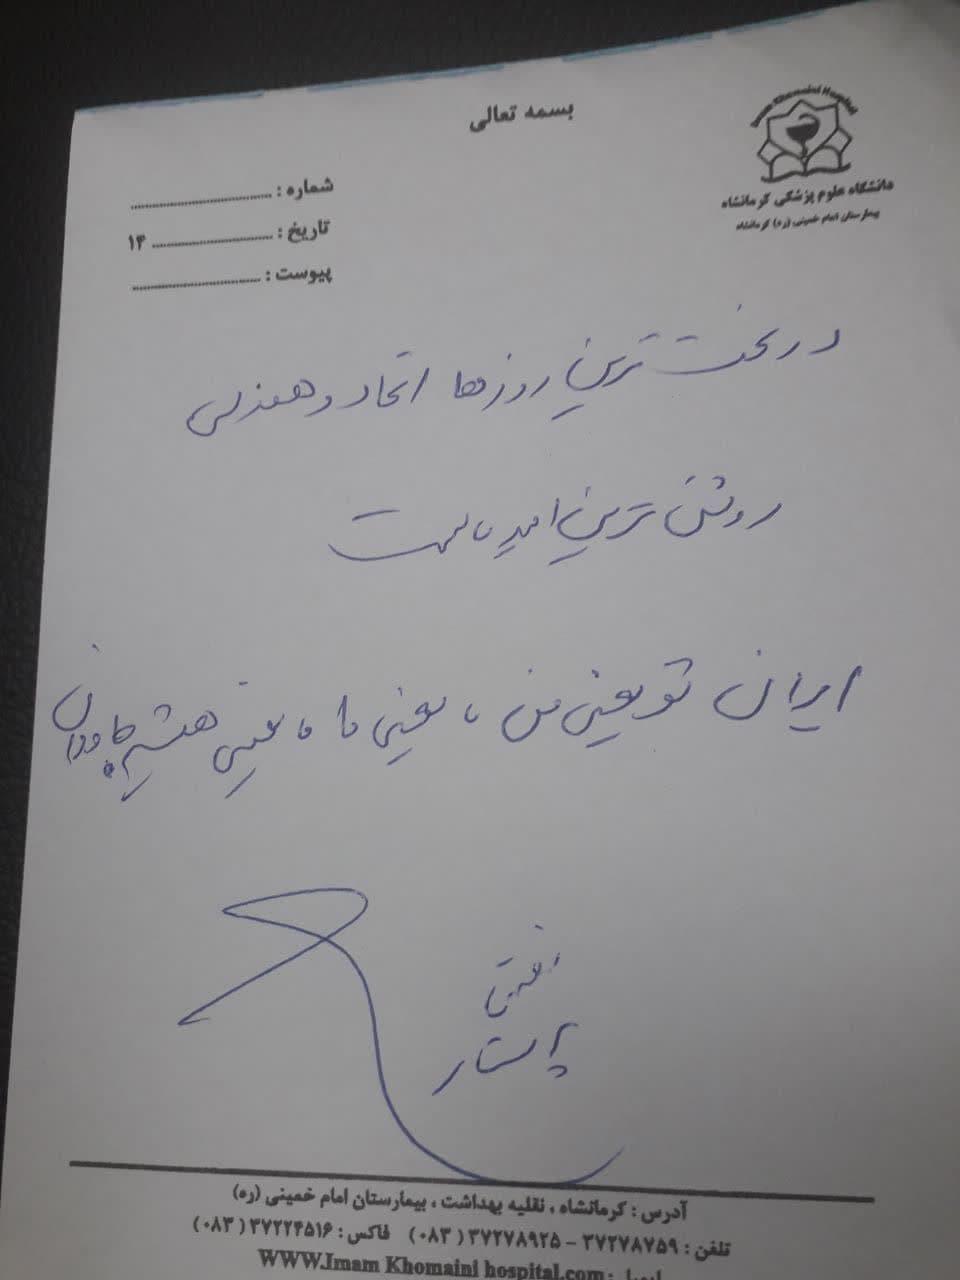 بسمه تعالی
Imam Khomaini Hospital
دانشگاه علوم پزشکی کرمانشاه
بیمارستان امام خمینی (ره) کرمانشاه
شماره : ....................
تاریخ : .................... ۱۴
پیوست : ....................
در سخت ترین روزها اتحاد و همدلی
روشن ترین امید ماست
ایران تو یعنی من ، یعنی ما ، یعنی همیشه جاودان
پرستار
آدرس : کرمانشاه ، نقلیه بهداشت ، بیمارستان امام خمینی (ره)
تلفن : ۳۷۲۷۸۷۵۹ – ۳۷۲۷۸۹۲۵ (۰۸۳) فاکس : ۳۷۲۲۴۵۱۶ (۰۸۳)
ایمیل : WWW.Imam Khomaini hospital.com